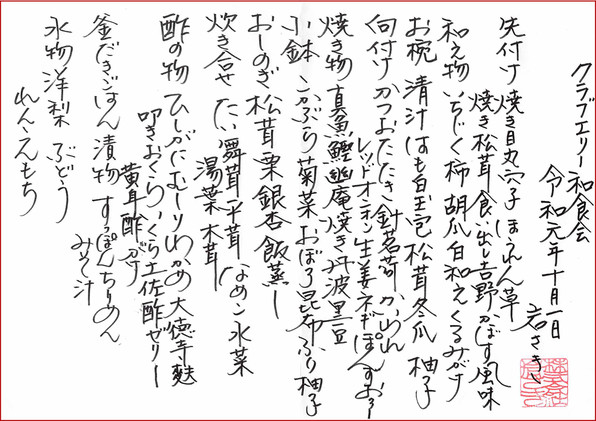 クラブエリー和食会
令和元年十月一日
岩さき
先付け 焼き目丸穴子 ほうれん草
焼き松茸 食い出し 吉野 かぼす風味
和え物 いちじく 柿 胡瓜 白和え くるみがけ
お椀 清汁 はも白玉包 松茸 冬瓜 柚子
向付け かつおたたき 針茗荷 かいわれ
レッドオニオン 生姜 ネギ ぽんずおろし
焼き物 真魚鰹幽庵焼き 丹波黒豆
小鉢 こかぶら 菊菜 おぼろ昆布 ふり柚子
おしのぎ 松茸 栗 銀杏 飯蒸し
炊き合せ たい 舞茸 平茸 なめこ 水菜
湯葉 木茸
酢の物 ひしがに むしり わかめ 大徳寺麩
叩きおくら いくら 土佐酢ゼリー
黄身酢がけ
釜だきごはん 漬物 すっぽん ちりめん
みそ汁
水物 洋梨 ぶどう
れんこんもち